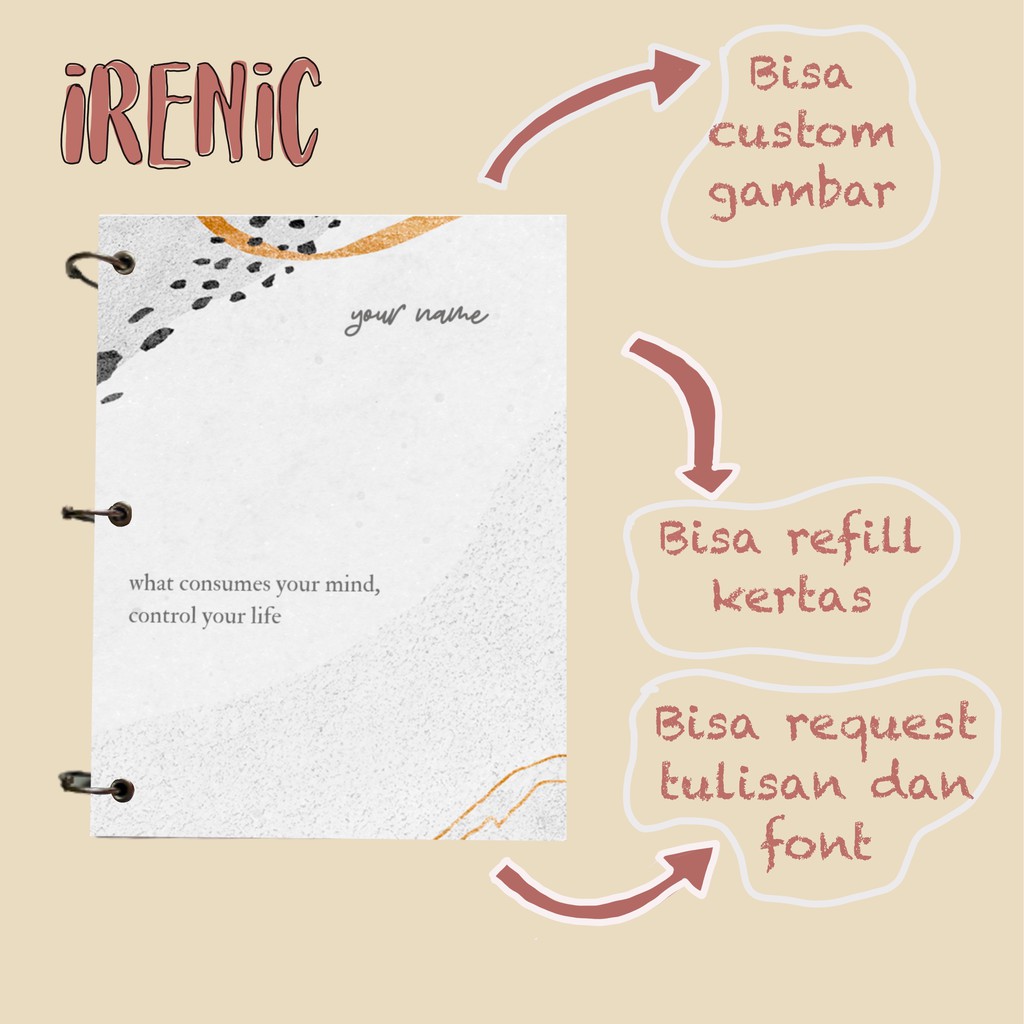 iRENiC
Bisa
custom
gambar
your name
what consumes your mind,
control your life
Bisa refill
kertas
Bisa request
tulisan dan
font